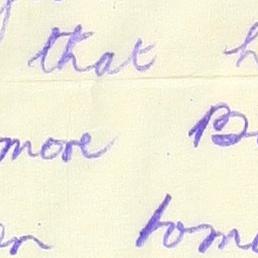 that h
more B
en tom